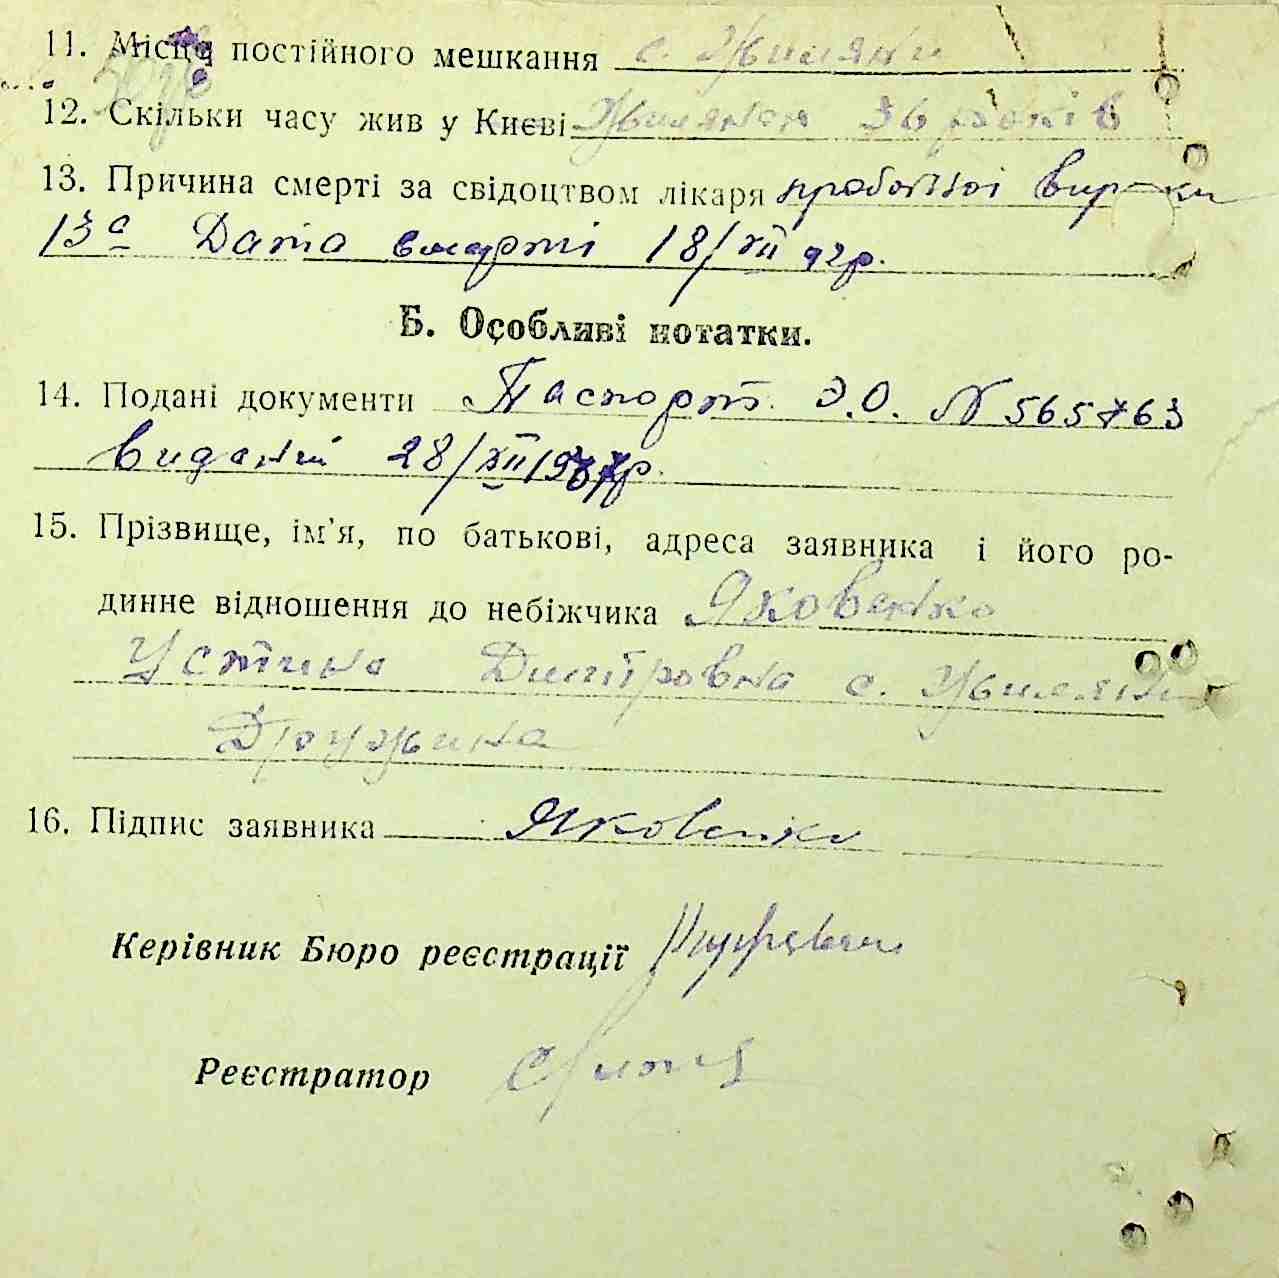 11. Місце постійного мешкання с. Жиляни
12. Скільки часу жив у Києві Жилянах 36 років
13. Причина смерті за свідоцтвом лікаря прободіної
13а Дата смерті 18/XII 42р.
Б. Особливі нотатки.
14. Подані документи Паспорт Э.О. № 565763
Виданій 28/XII 1937р.
15. Прізвище, ім'я, по батькові, адреса заявника і його ро-
динне відношення до небіжчика Яковенко
Устина Дмитровна с. Жиляни
Дружина
16. Підпис заявника Яковенко
Керівник Бюро реєстрації
Реєстратор